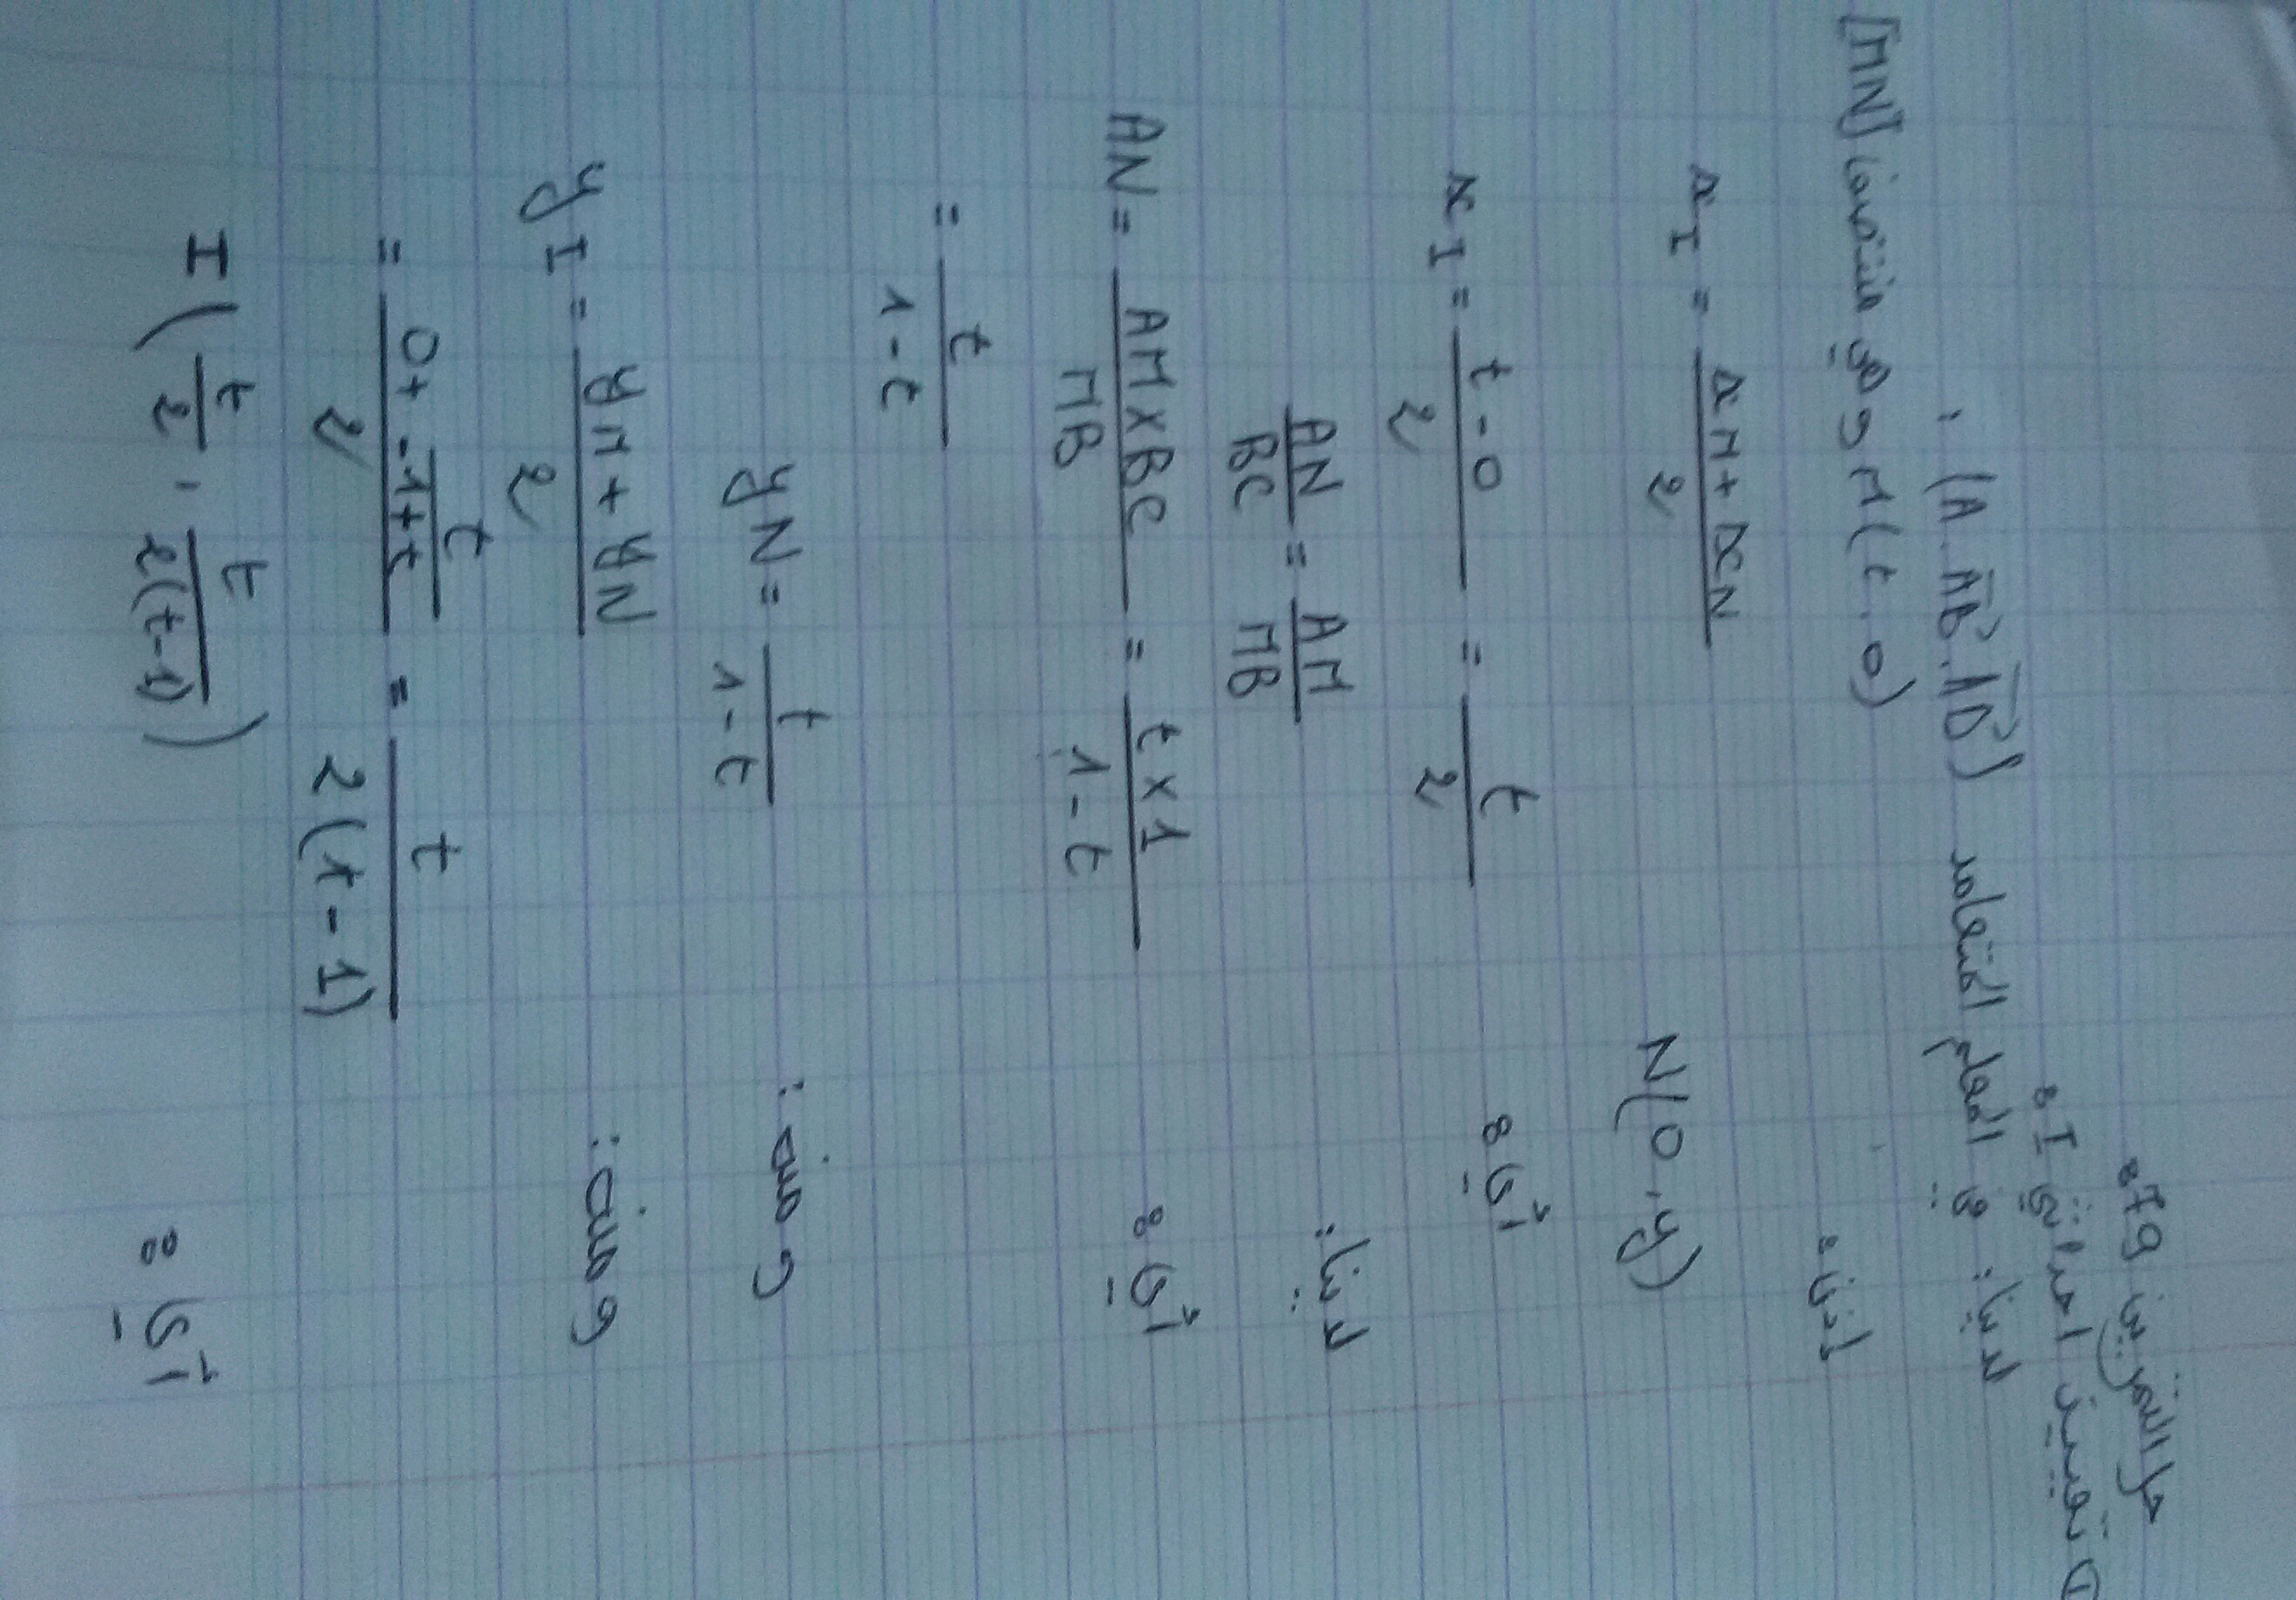 حل التمرين 79:
① تعيين احداثيي I:
لدينا: في المعلم المتعامد (A.AB.AD)
إذن: M(t.0) و هي منتصف [MN]
N(0,y) x_I = (x_M + x_N)/2
أي: x_I = (t-0)/2 = t/2
لدينا: AN/BC = AM/MB
أي: AN = (AM×BC)/MB = (t×1)/(1-t)
= t/(1-t)
و منه: y_N = t/(1-t)
و منه: y_I = (y_M + y_N)/2
= (0 + t/(-1+t))/2 = t/(2(t-1))
أي: I(t/2, t/(2(t-1)))